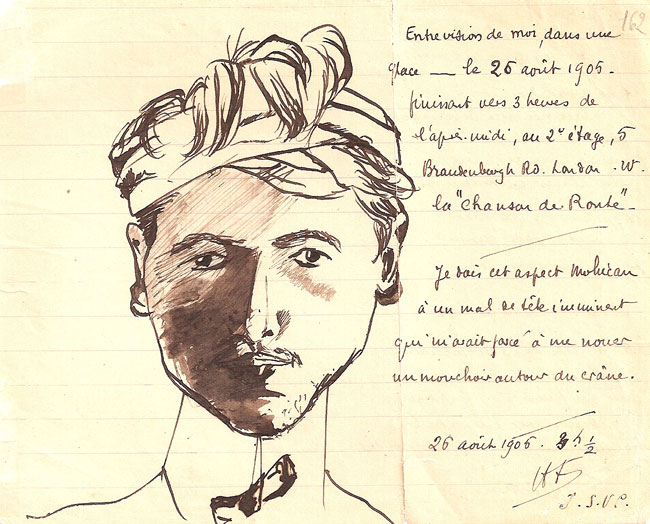 162
Entrevision de moi, dans une
glace — le 26 août 1905.
finissant vers 3 heures de
l'après-midi, au 2e étage, 5
Brandenburgh Rd. London . W.
la "Chanson de Route" -
Je dois cet aspect Mohican
à un mal de tête imminent
qui m'avait forcé à me nouer
un mouchoir autour du crâne.
26 août 1905. 3h 1/2
T. S. V. P.